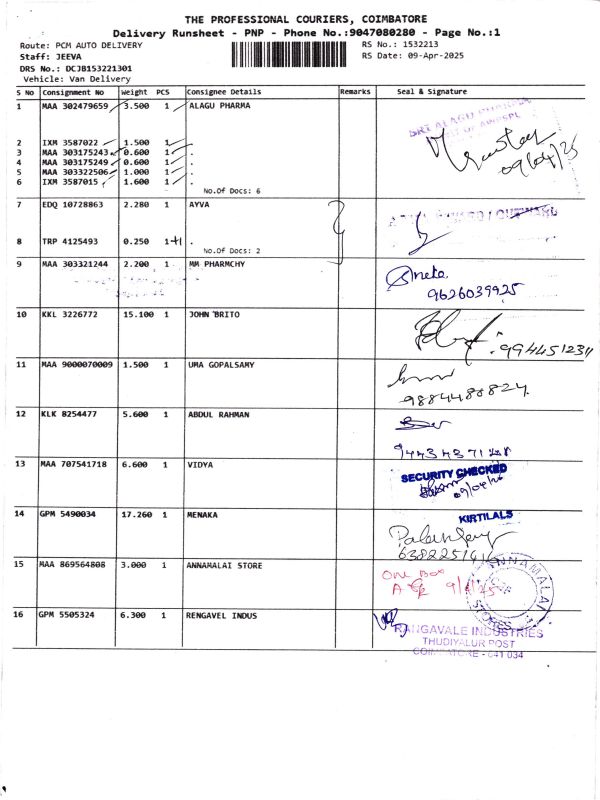 THE PROFESSIONAL COURIERS, COIMBATORE
Delivery Runsheet - PNP - Phone No.:9047080280 - Page No.:1
Route: PCM AUTO DELIVERY
RS No.: 1532213
Staff: JEEVA
RS Date: 09-Apr-2025
DRS No.: DCJB153221301
Vehicle: Van Delivery
S No Consignment No Weight PCS Consignee Details Remarks Seal & Signature
1 MAA 302479659 3.500 1 ALAGU PHARMA
SRI ALAGU PHARMA
2 IXM 3587022 1.500 1 .
3 MAA 303175243 0.600 1 .
4 MAA 303175249 0.600 1 .
5 MAA 303322506 1.000 1 .
6 IXM 3587015 1.600 1 .
09/04/25
No.Of Docs: 6
7 EDQ 10728863 2.280 1 AYVA
8 TRP 4125493 0.250 1+1 .
No.Of Docs: 2
9 MAA 303321244 2.200 1 MM PHARMCHY
9626039925
10 KKL 3226772 15.100 1 JOHN BRITO
9944512311
11 MAA 9000070009 1.500 1 UMA GOPALSAMY
9884488824
12 KLK 8254477 5.600 1 ABDUL RAHMAN
13 MAA 707541718 6.600 1 VIDYA
SECURITY CHECKED
09/04/25
14 GPM 5490034 17.260 1 MENAKA
KIRTILALS
15 MAA 869564808 3.000 1 ANNAMALAI STORE
One Box
9/4/25
ANNAMALAI STORES
16 GPM 5505324 6.300 1 RENGAVEL INDUS
RANGAVALE INDUSTRIES
THUDIYALUR POST
COIMBATORE - 641 034